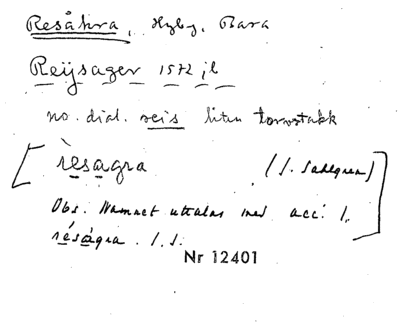 Resåkra, Hyby, Bara
Reijsager 1572 jb
no. dial. reis liten torvstakk
[résagra (J. Sahlgren)
Obs. Namnet uttalas med acc. 1.
réságra. J.S.]
Nr 12401